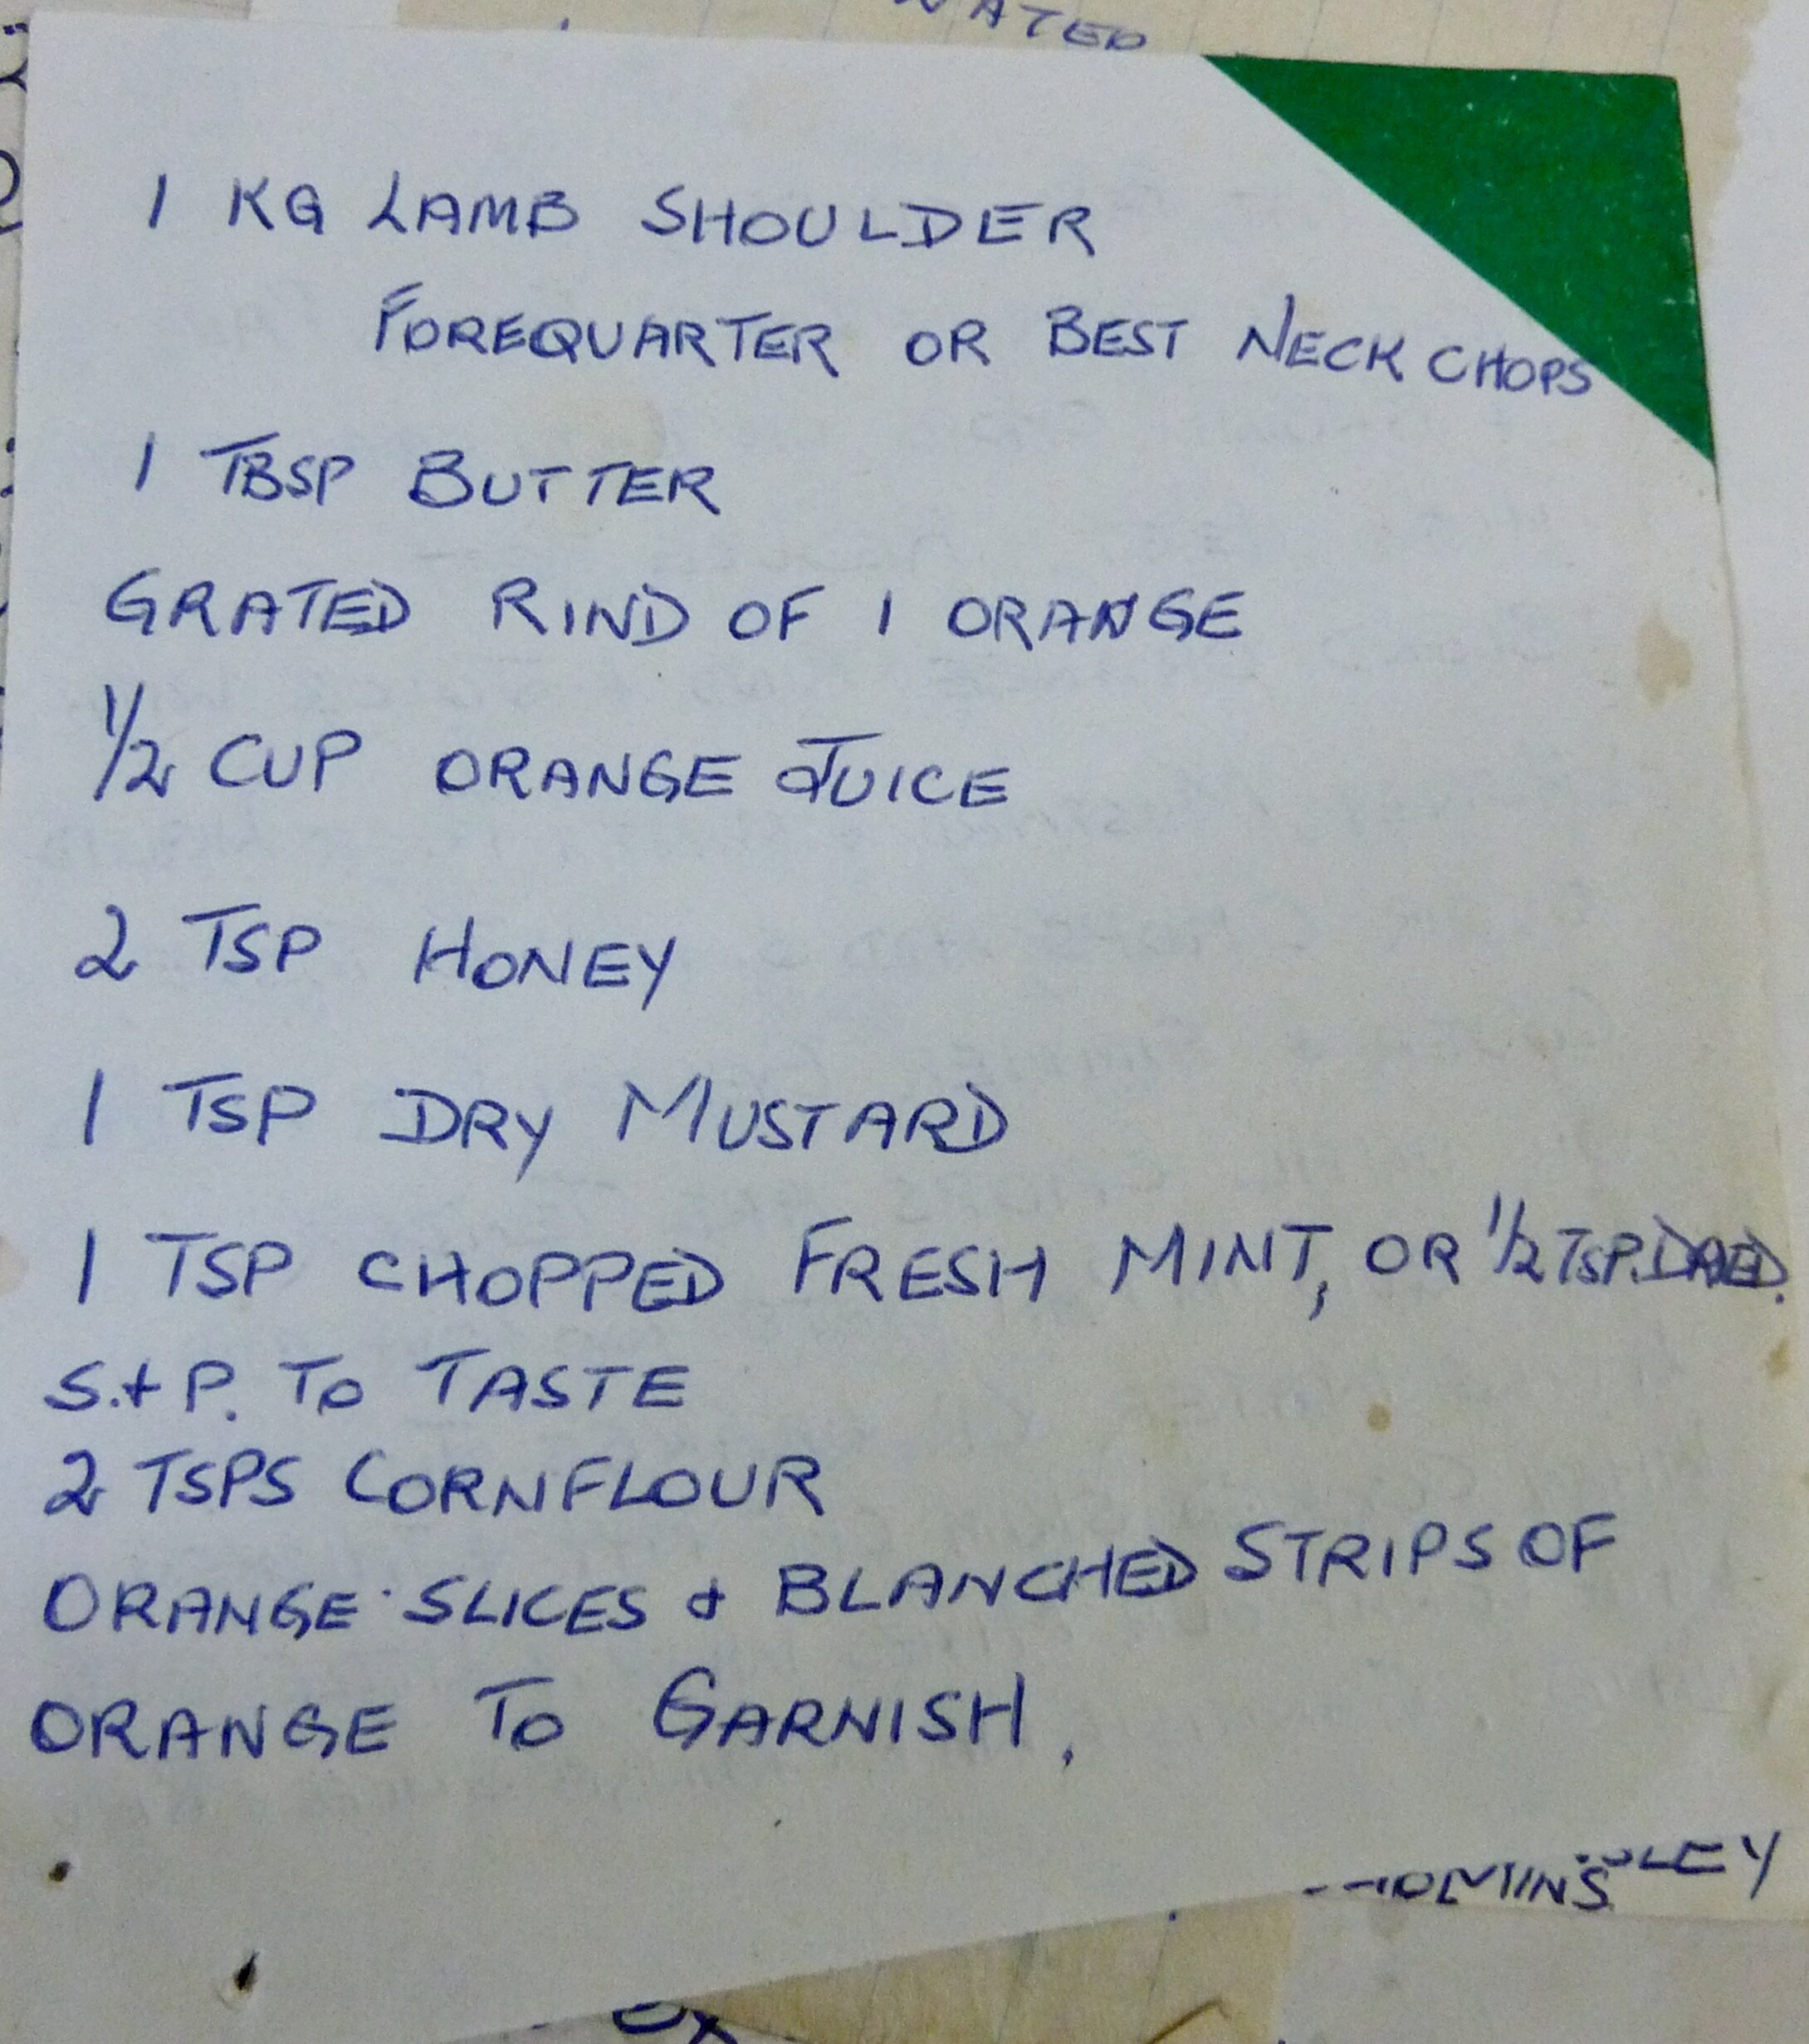 1 KG LAMB SHOULDER
FOREQUARTER OR BEST NECK CHOPS
1 TBSP BUTTER
GRATED RIND OF 1 ORANGE
1/2 CUP ORANGE JUICE
2 TSP HONEY
1 TSP DRY MUSTARD
1 TSP CHOPPED FRESH MINT, OR 1/2 TSP. DRIED.
S. + P. TO TASTE
2 TSPS CORNFLOUR
ORANGE SLICES & BLANCHED STRIPS OF
ORANGE TO GARNISH.